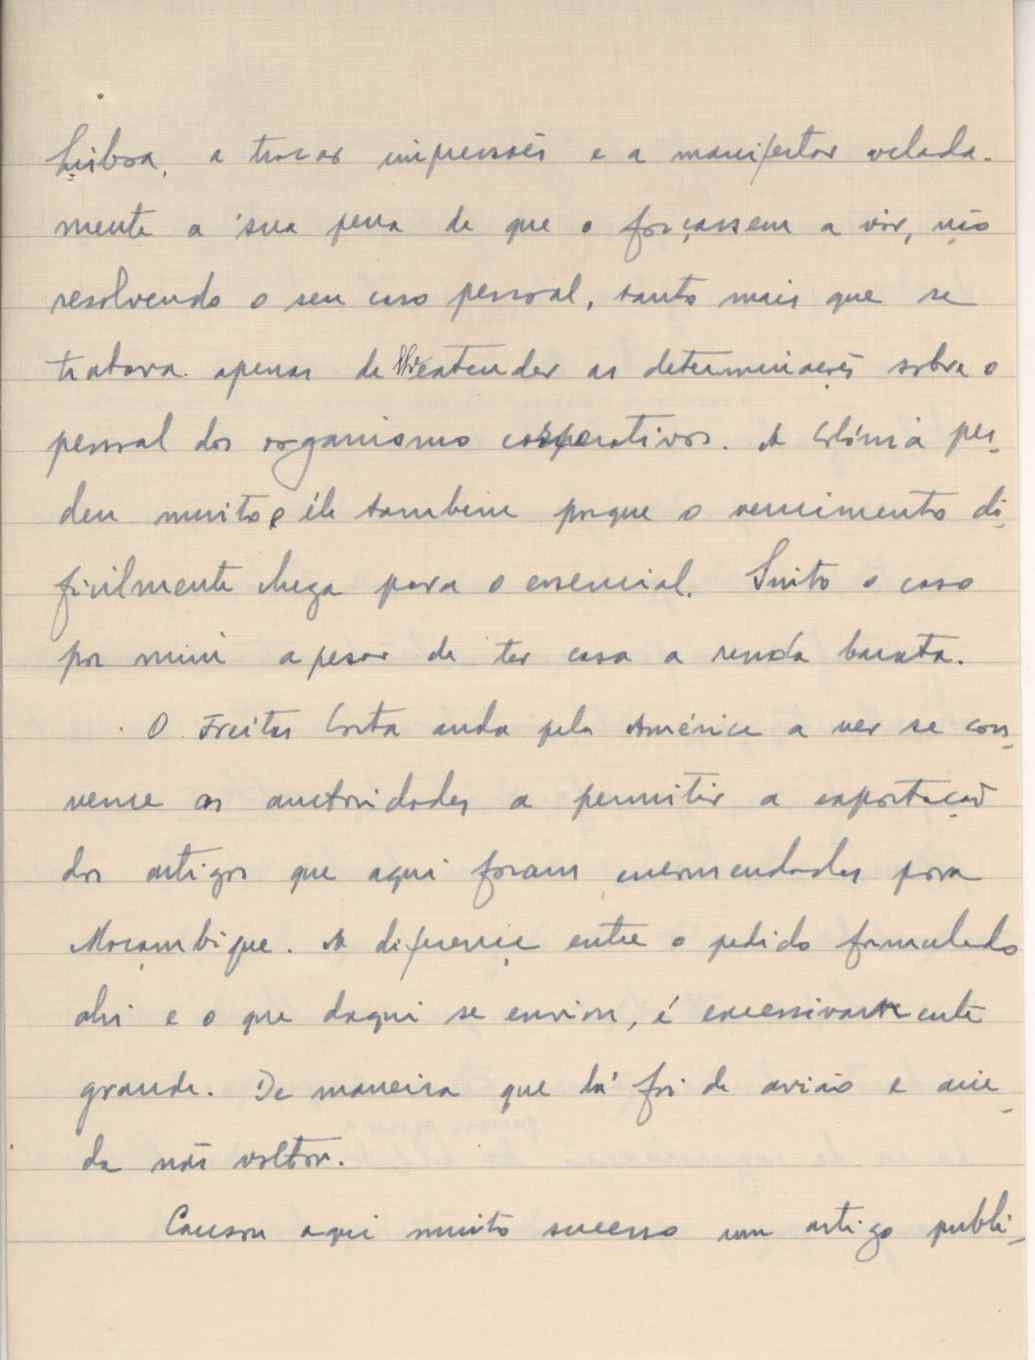 Lisboa, a trocar impressões e a manifestar velada-
mente a sua pena de que o forçassem a vir, não
resolvendo o seu caso pessoal, tanto mais que se
tratava apenas de lhe estender as determinações sobre o
pessoal dos organismo corporativos. A Colónia per-
deu muito e êle tambem porque o vencimento di-
ficilmente chega para o essencial. Sinto o caso
por mim apesar de ter casa a renda barata.
O Freitas Costa anda pela América a ver se con-
vence as auctoridades a permitir a exportação
dos artigos que aqui foram encomendados para
Moçambique. A diferença entre o pedido formulado
ahi e o que daqui se enviou, é excessivamente
grande. De maneira que lá foi de avião e ain-
da não voltou.
Causou aqui muito sucesso um artigo publi-